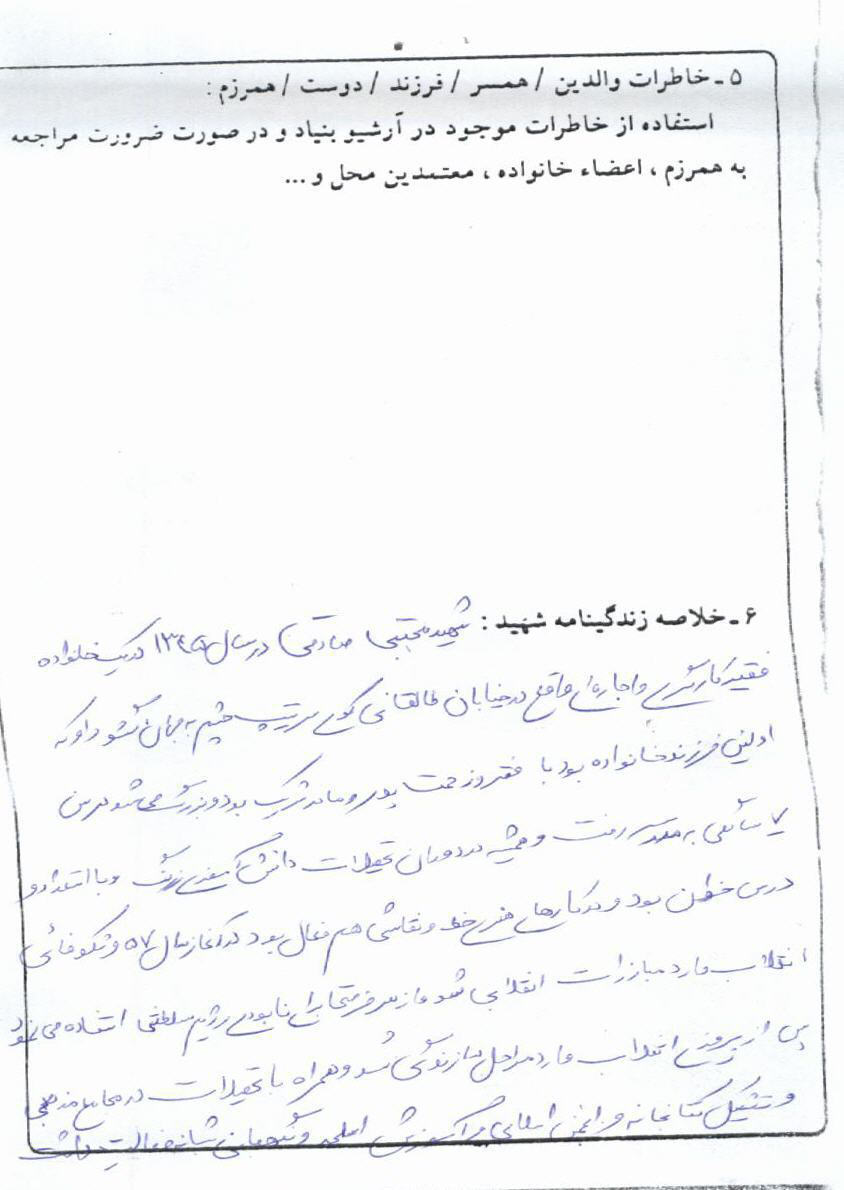 ۵ ـ خاطرات والدین / همسر / فرزند / دوست / همرزم :
استفاده از خاطرات موجود در آرشیو بنیاد و در صورت ضرورت مراجعه
به همرزم ، اعضاء خانواده ، معتمدین محل و ...
۶ ـ خلاصه زندگینامه شهید : شهید مجتبی صادقی در سال ۱۳۴۵ در یک خانواده
فقیر کارگری و اجاره‌ای واقع در خیابان طالقانی کوی چشم به جهان گشود او که
اولین فرزند خانواده بود با فقر و زحمت پدر و مادر شریک بود و بزرگ می شد در سن
۷ سالگی به مدرسه رفت و همیشه در دوران تحصیلات دانش آموزی زرنگ و با استعداد و
درس خوان بود و در کارهای هنری خط و نقاشی هم فعال بود در آغاز سال ۵۷ و شکوفائی
انقلاب وارد مبارزات انقلابی شد و از هر فرصتی برای نابودی رژیم سلطنتی استفاده می نمود
پس از پیروزی انقلاب وارد مراحل سازندگی شد و همراه با تحصیلات در مجامع مذهبی
و تشکیل کتابخانه و انجمن اسلامی و آموزش اسلحه و نگهبانی شبانه فعالیت داشت